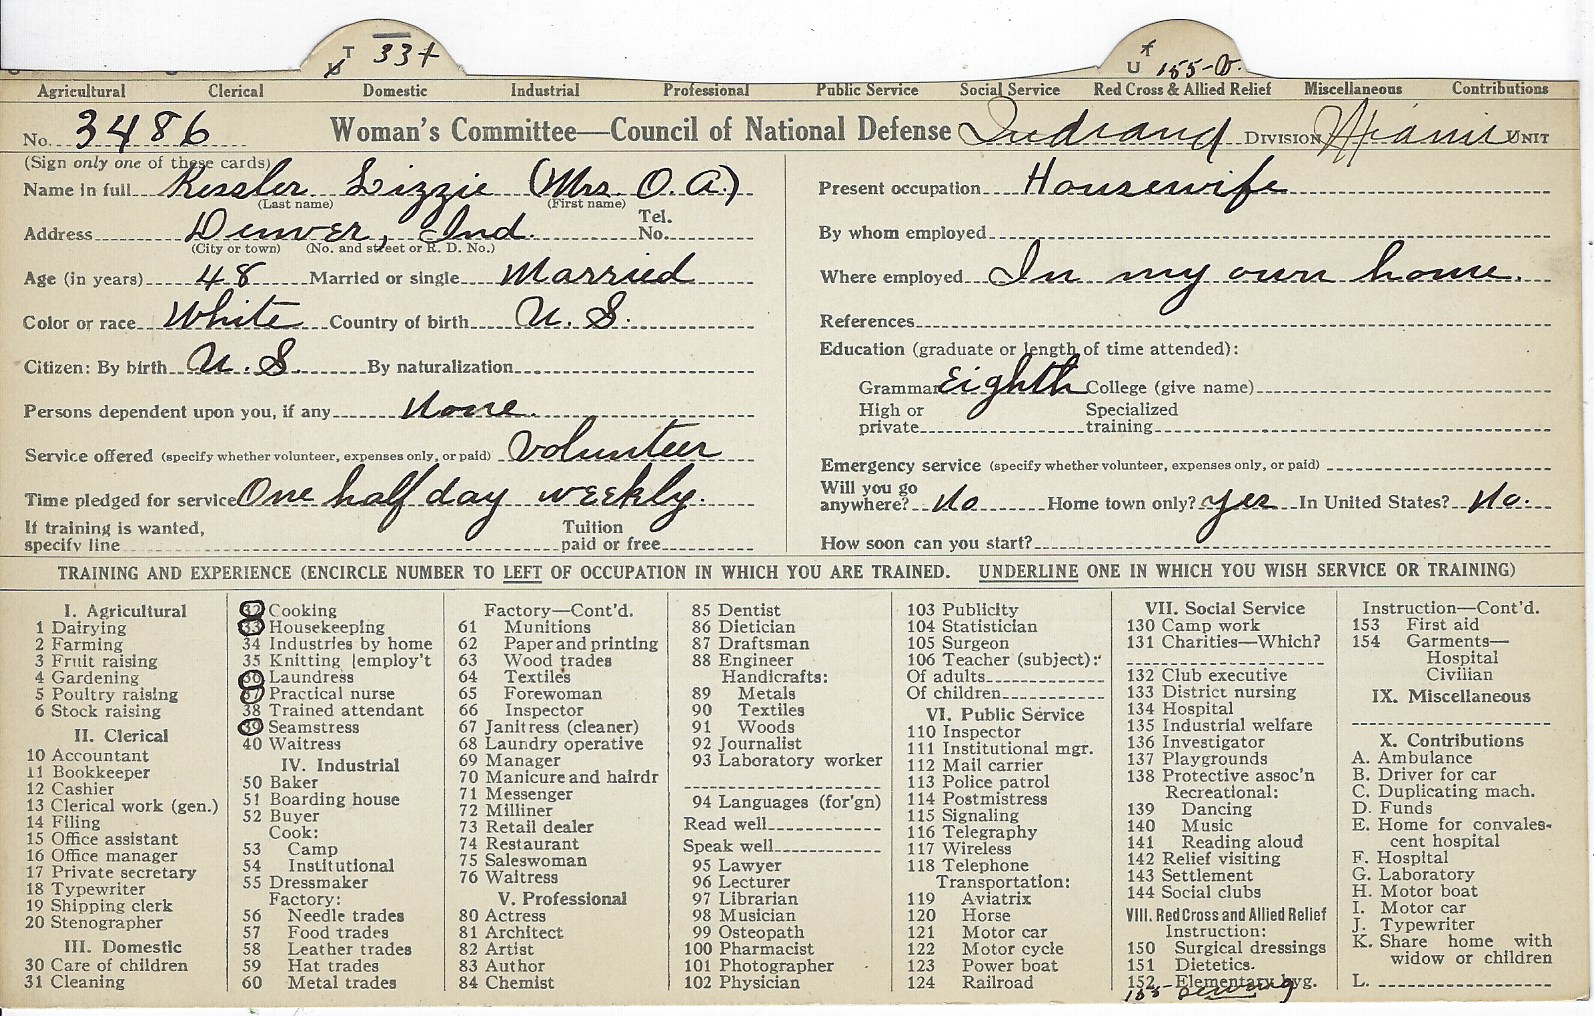 T 33+
U 155-V.
Agricultural Clerical Domestic Industrial Professional Public Service Social Service Red Cross & Allied Relief Miscellaneous Contributions
No. 3486 Woman's Committee—Council of National Defense Indiana DIVISION Miami UNIT
(Sign only one of these cards)
Name in full Ressler Lizzie (Mrs. O. A.)
(Last name) (First name)
Address Denver, Ind. Tel. No.
(City or town) (No. and street or R. D. No.)
Age (in years) 48 Married or single Married
Color or race White Country of birth U. S.
Citizen: By birth U. S. By naturalization
Persons dependent upon you, if any None.
Service offered (specify whether volunteer, expenses only, or paid) Volunteer
Time pledged for service One half day weekly.
If training is wanted, specify line Tuition paid or free
Present occupation Housewife
By whom employed
Where employed In my own home.
References
Education (graduate or length of time attended):
Grammar Eighth College (give name)
High or private Specialized training
Emergency service (specify whether volunteer, expenses only, or paid)
Will you go anywhere? No Home town only? yes In United States? No.
How soon can you start?
TRAINING AND EXPERIENCE (ENCIRCLE NUMBER TO LEFT OF OCCUPATION IN WHICH YOU ARE TRAINED. UNDERLINE ONE IN WHICH YOU WISH SERVICE OR TRAINING)
I. Agricultural
1 Dairying
2 Farming
3 Fruit raising
4 Gardening
5 Poultry raising
6 Stock raising
II. Clerical
10 Accountant
11 Bookkeeper
12 Cashier
13 Clerical work (gen.)
14 Filing
15 Office assistant
16 Office manager
17 Private secretary
18 Typewriter
19 Shipping clerk
20 Stenographer
III. Domestic
30 Care of children
31 Cleaning
32 Cooking
33 Housekeeping
34 Industries by home
35 Knitting [employ't
36 Laundress
37 Practical nurse
38 Trained attendant
39 Seamstress
40 Waitress
IV. Industrial
50 Baker
51 Boarding house
52 Buyer
Cook:
53 Camp
54 Institutional
55 Dressmaker
Factory:
56 Needle trades
57 Food trades
58 Leather trades
59 Hat trades
60 Metal trades
Factory—Cont'd.
61 Munitions
62 Paper and printing
63 Wood trades
64 Textiles
65 Forewoman
66 Inspector
67 Janitress (cleaner)
68 Laundry operative
69 Manager
70 Manicure and hairdr
71 Messenger
72 Milliner
73 Retail dealer
74 Restaurant
75 Saleswoman
76 Waitress
V. Professional
80 Actress
81 Architect
82 Artist
83 Author
84 Chemist
85 Dentist
86 Dietician
87 Draftsman
88 Engineer
Handicrafts:
89 Metals
90 Textiles
91 Woods
92 Journalist
93 Laboratory worker
94 Languages (for'gn)
Read well
Speak well
95 Lawyer
96 Lecturer
97 Librarian
98 Musician
99 Osteopath
100 Pharmacist
101 Photographer
102 Physician
103 Publicity
104 Statistician
105 Surgeon
106 Teacher (subject):
Of adults
Of children
VI. Public Service
110 Inspector
111 Institutional mgr.
112 Mail carrier
113 Police patrol
114 Postmistress
115 Signaling
116 Telegraphy
117 Wireless
118 Telephone
Transportation:
119 Aviatrix
120 Horse
121 Motor car
122 Motor cycle
123 Power boat
124 Railroad
VII. Social Service
130 Camp work
131 Charities—Which?
132 Club executive
133 District nursing
134 Hospital
135 Industrial welfare
136 Investigator
137 Playgrounds
138 Protective assoc'n
Recreational:
139 Dancing
140 Music
141 Reading aloud
142 Relief visiting
143 Settlement
144 Social clubs
VIII. Red Cross and Allied Relief
Instruction:
150 Surgical dressings
151 Dietetics.
152 Elementary hyg.
155- Sewing
Instruction—Cont'd.
153 First aid
154 Garments—
Hospital
Civilian
IX. Miscellaneous
X. Contributions
A. Ambulance
B. Driver for car
C. Duplicating mach.
D. Funds
E. Home for convales-
cent hospital
F. Hospital
G. Laboratory
H. Motor boat
I. Motor car
J. Typewriter
K. Share home with
widow or children
L.